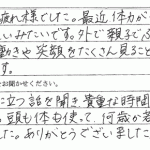 疲れ様でした。最近体力が
いみたいです。外で親子で
動きや笑顔をたくさん見ること
す。
お聞かせください。
に立つ話を聞き貴重な時間
頭も体も使って、何歳か若
した。ありがとうございました